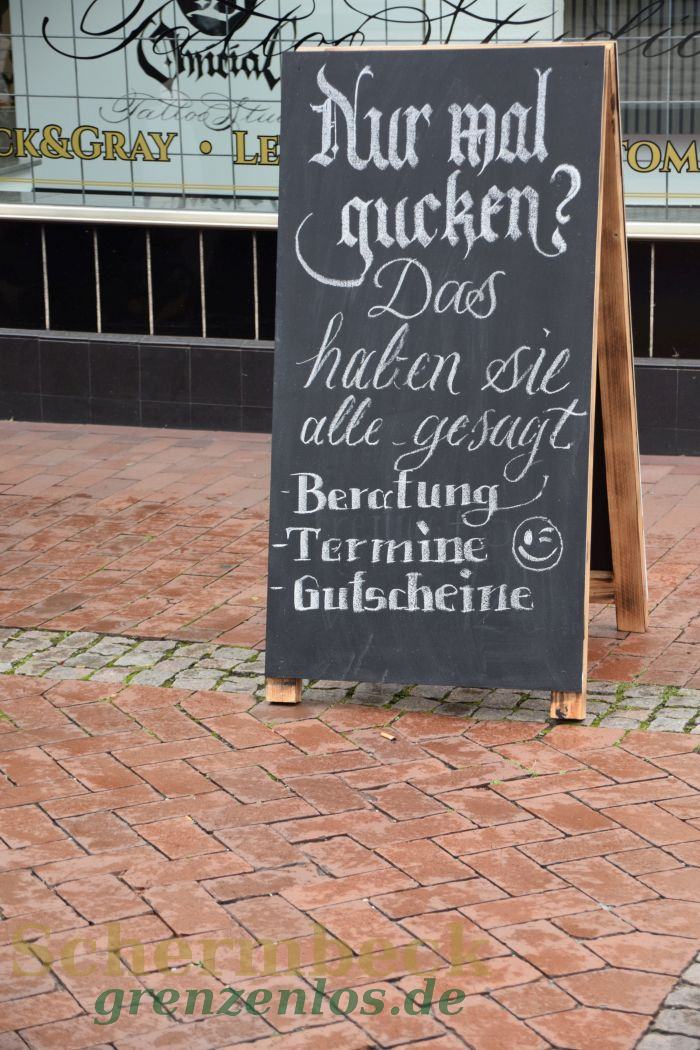 Tattoo Studio
Official
Tattoo Studio
CK&GRAY • LE
TOM
Nur mal
gucken?
Das
haben sie
alle gesagt
-Beratung
-Termine
-Gutscheine
Schermbeck
grenzenlos.de